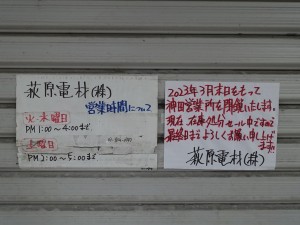 萩原電材(株)
営業時間について
火・木曜日
PM 1:00～4:00まで
土曜日
PM 2:00～5:00まで
2023年3月末をもって
神田営業所を閉鎖いたします。
現在 在庫処分セール中ですので
最終日までよろしくお願い申し上げ
ます。
萩原電材(株)